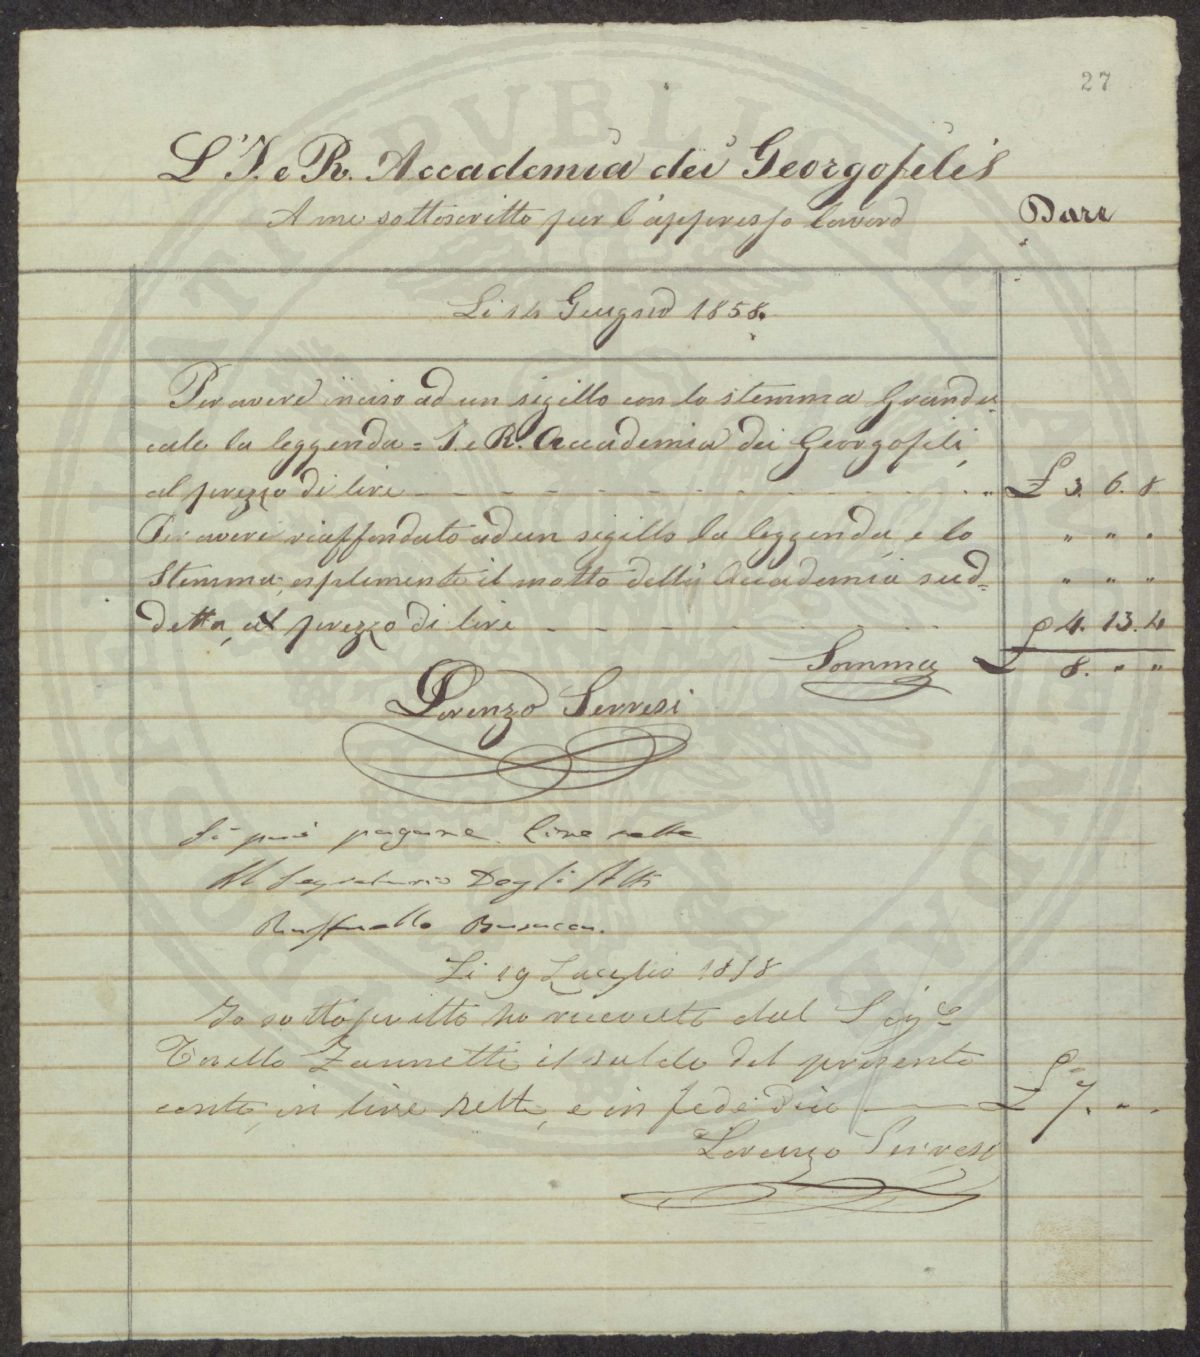 27
L'I. e R. Accademia dei Georgofili
A me sottoscritto per l'appresso lavoro Dare
Li 14 Giugno 1858.
Per avere inciso ad un sigillo con lo stemma Grandu=
cale la leggenda = I. e R. Accademia dei Georgofili,
al prezzo di lire - - - - - - - - - - - - - „ £ 3. 6. 8
Per avere riaffondato ad un sigillo la leggenda, e lo „ „ „
Stemma, esplimente il motto della Accademia sud= „ „ „
detta, al prezzo di lire - - - - - - - - £ 4. 13. 4
Somma £ 8. „ „
Lorenzo Serresi
Si può pagare lire sette
Il Segretario Degli Atti
Raffaello Busacca.
Li 19 Luglio 1858
Io sottoscritto ho ricevuto dal Sig.e
Torello Zannetti il saldo del presente
conto, in lire sette, e in fede dico —— £ 7. „ „
Lorenzo Serresi